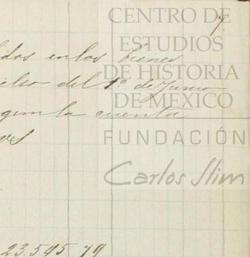 CENTRO DE
ESTUDIOS
DE HISTORIA
DE MEXICO
FUNDACIÓN
Carlos Slim
en los bienes
del 1º de Junio
la cuenta
23.595 79